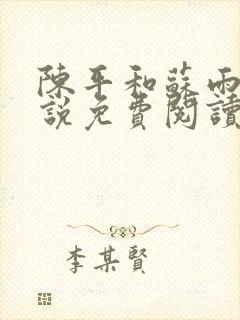 陳平和蘇雨
說免費閱讀
李某賢